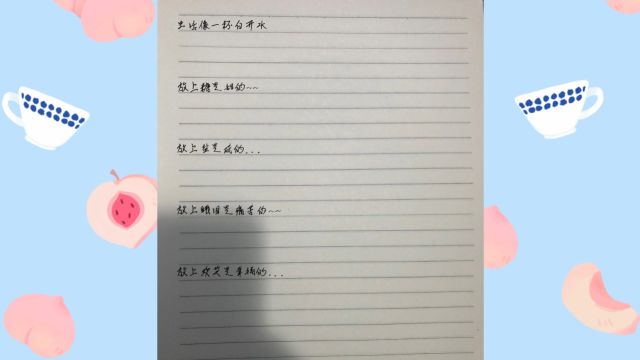 生活像一杯白开水
放上糖是甜的~~
放上盐是咸的...
放上眼泪是痛苦的~~
放上欢笑是幸福的...